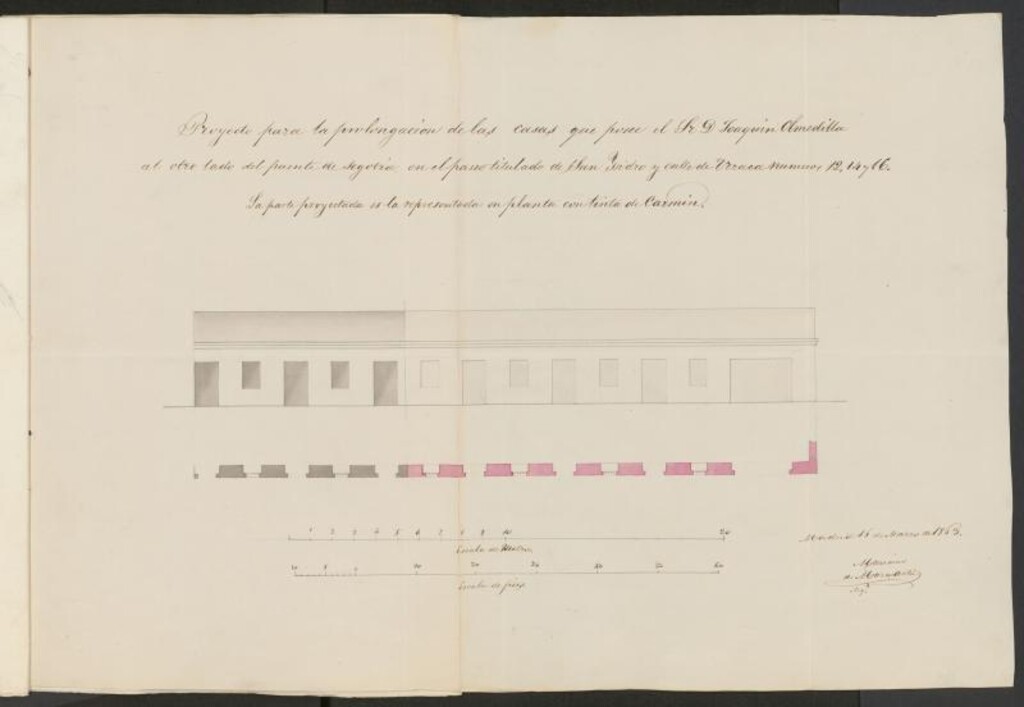 Proyecto para la prolongacion de las casas que posee el Sr. D. Joaquin Olmedilla
al otro lado del puente de Segovia en el paseo titulado de San Isidro y calle de Urraca numeros 12, 14 y 16.
La parte proyectada es la representada en planta con tinta de Carmin.
1 2 3 4 5 6 7 8 9 10 20
Escala de Metros
10 5 10 20 30 40 50 60
Escala de pies
Madrid 16 de Marzo de 1863.
Mariano